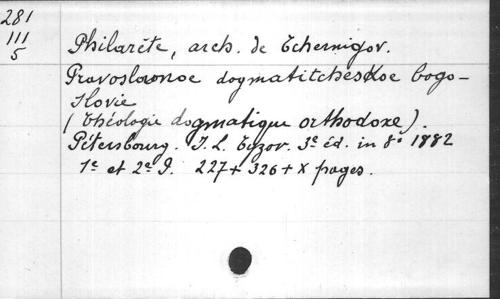 281
111
5
Philarète, arch. de Tchernigov.
Pravoslavnoe dogmatitcheskoe bogo-
slovie
(Théologie dogmatique orthodoxe).
Pétersbourg. I. L. Tuzov. 3e éd. in 8o 1882
1e et 2e P. 227 + 326 + X pages.